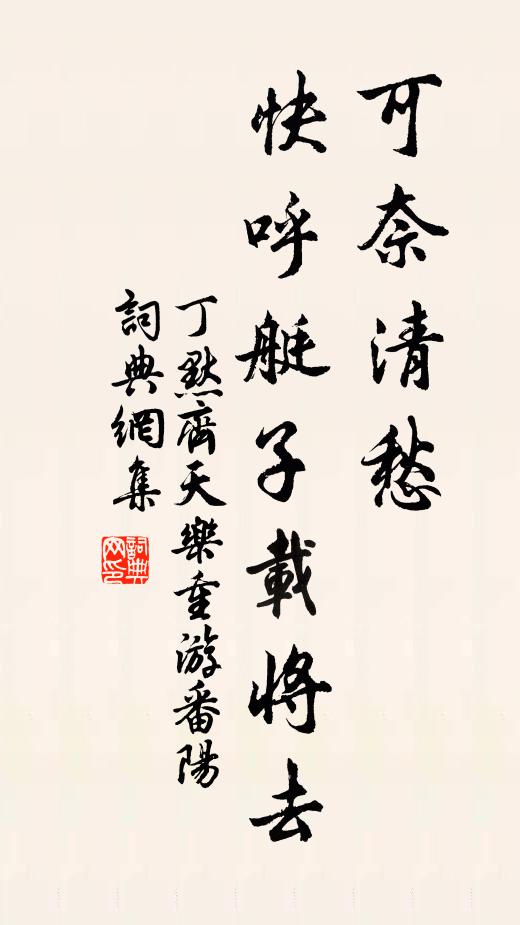 可奈清愁
快呼艇子載將去
丁黙齊天樂重游番陽
詞典網集
詞典網印